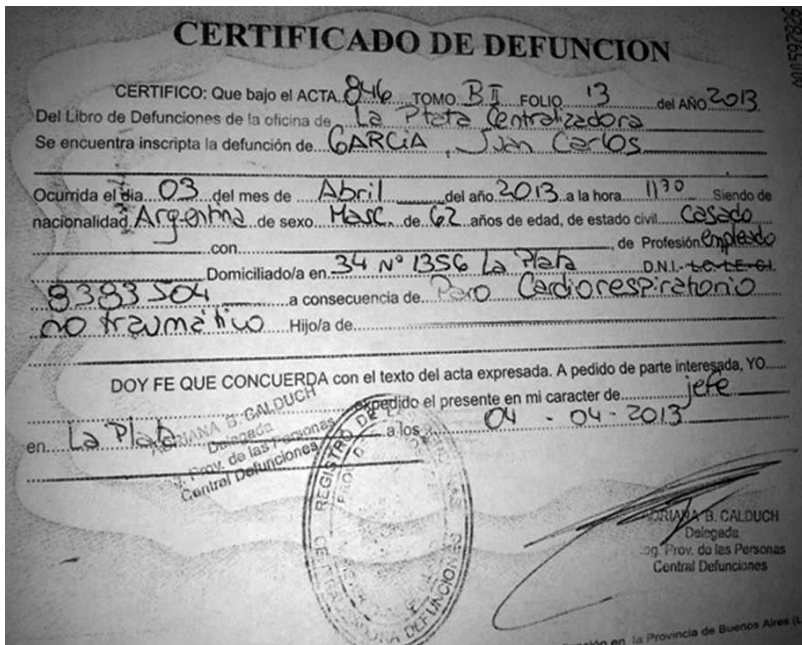 CERTIFICADO DE DEFUNCION
000597826
CERTIFICO: Que bajo el ACTA 846 TOMO B II FOLIO 13 del AÑO 2013
Del Libro de Defunciones de la oficina de La Plata Centralizadora
Se encuentra inscripta la defunción de GARCIA, Juan Carlos
Ocurrida el dia 03 del mes de Abril del año 2013 a la hora 1130 Siendo de
nacionalidad Argentina de sexo Masc. de 62 años de edad, de estado civil Casado
con de Profesión empleado
Domiciliado/a en 34 Nº 1356 La Plata D.N.I.- L.C. L.E. C.I.
8383504 a consecuencia de Paro Cardiorespiratorio
no traumático Hijo/a de
DOY FE QUE CONCUERDA con el texto del acta expresada. A pedido de parte interesada, YO
expedido el presente en mi caracter de jefe
en La Plata a los 04 - 04 - 2013
ADRIANA B. CALDUCH
Delegada
Prov. de las Personas
Central Defunciones
REGISTRO DE
DEFUNCIONES
ADRIANA B. CALDUCH
Delegada
Prov. de las Personas
Central Defunciones
en la Provincia de Buenos Aires